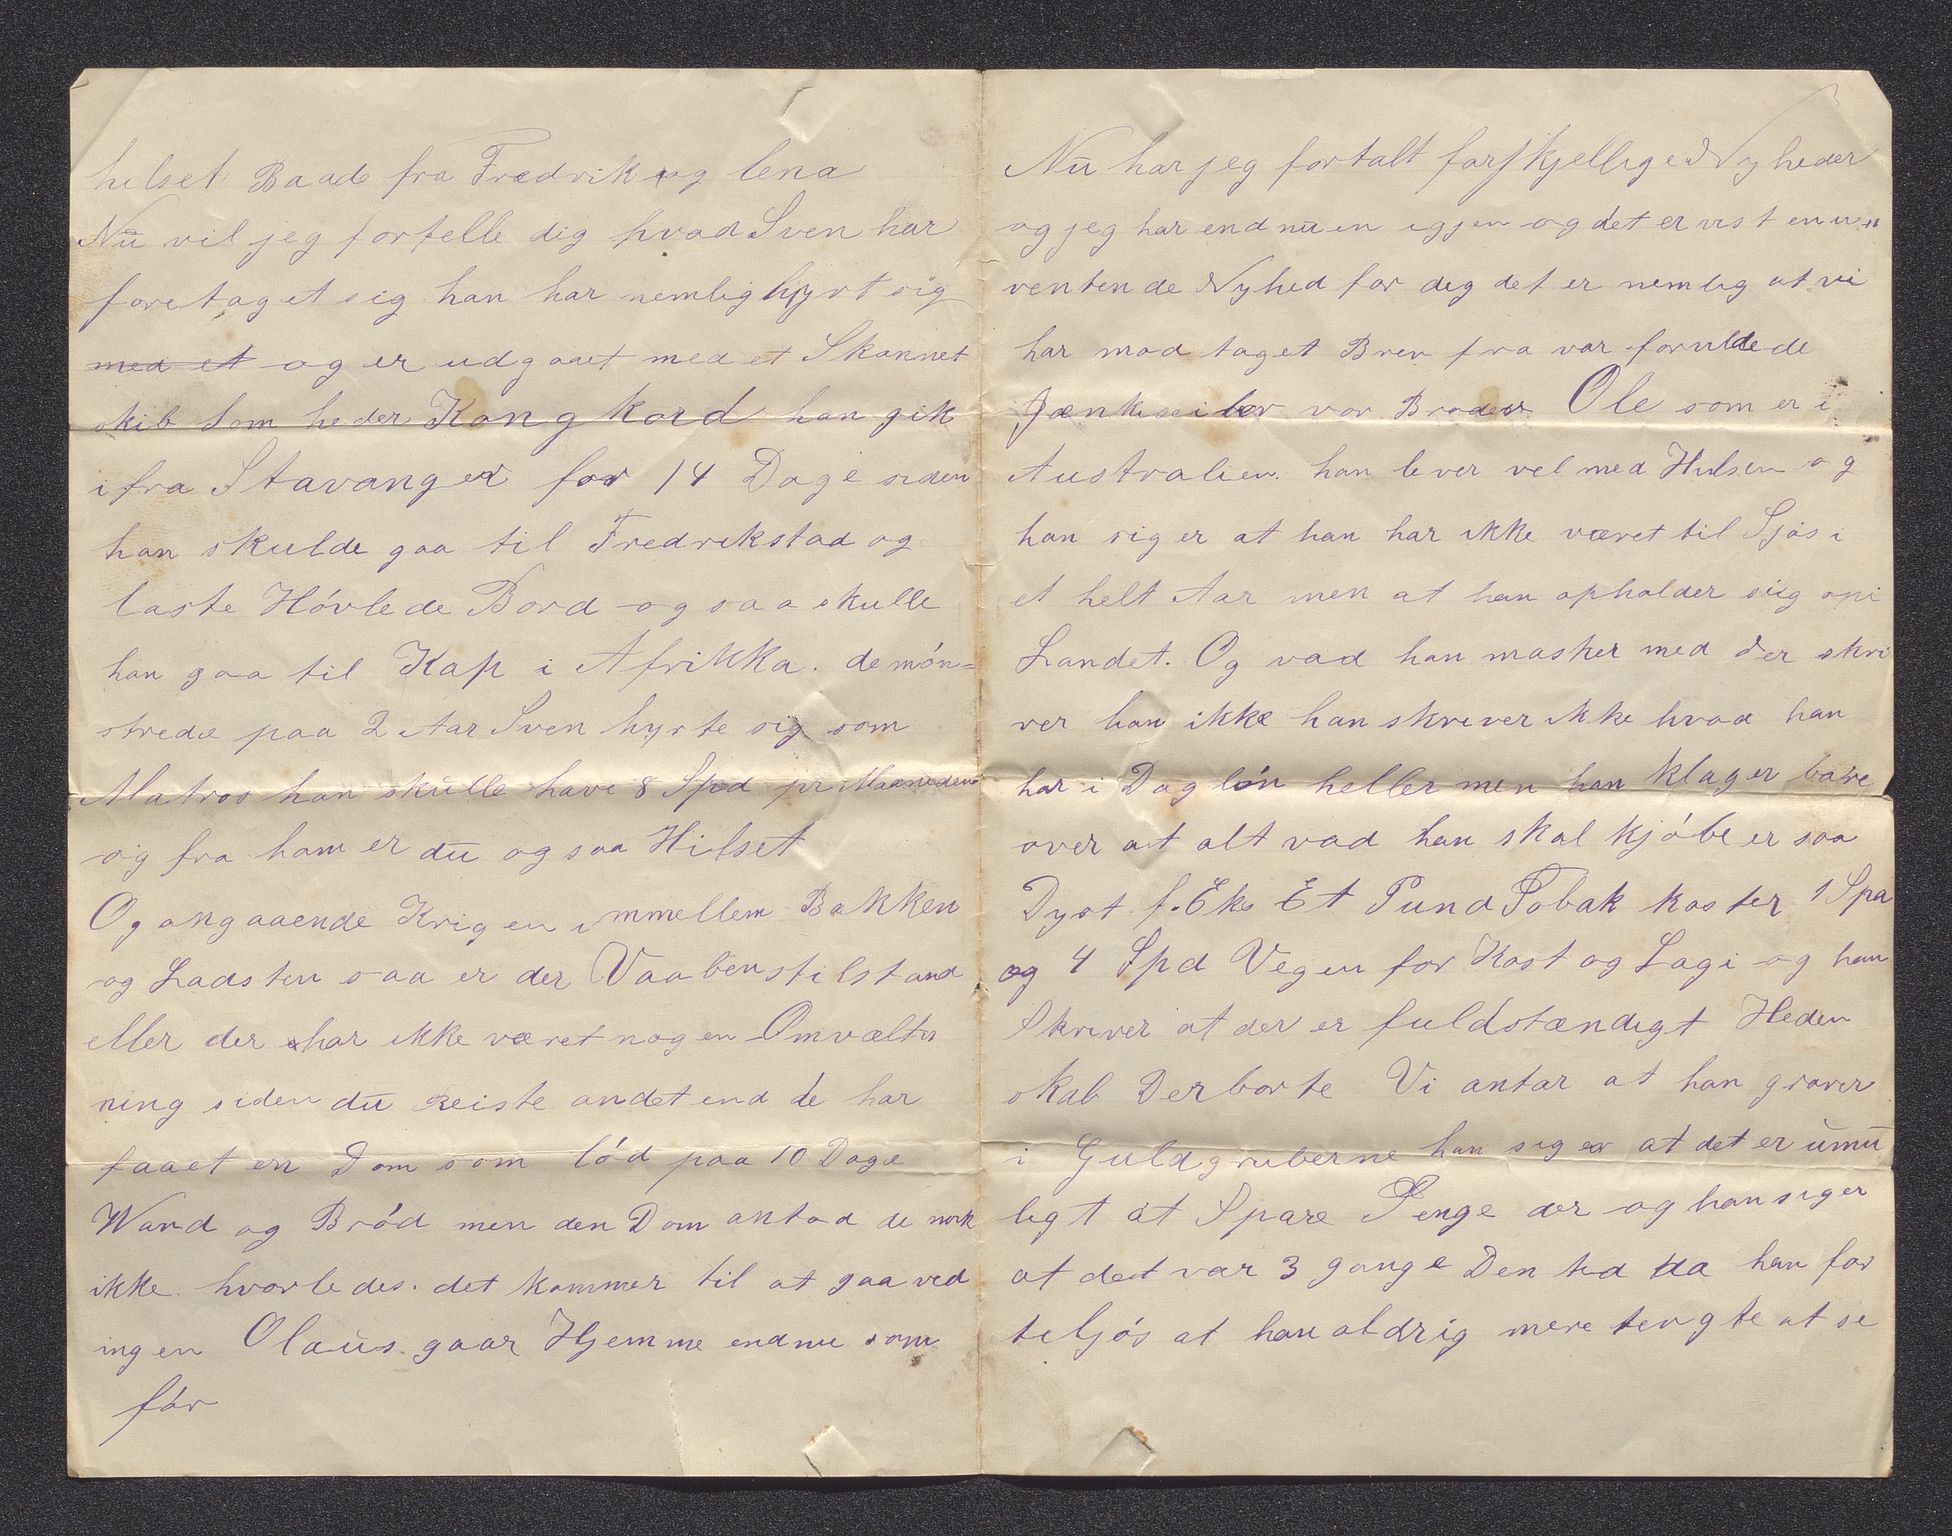 helset Baade fra Fredrik og lena
Nu vil jeg fortelle dig hvad Sven har
foretaget sig han har nemlig hyrt sig
med et og er udgaaet med et Skonnet
skib som heder Kong kord han gik
ifra Stavanger for 14 Dage siden
han skulde gaa til Fredrikstad og
laste Hóvlede Bord og saa skulle
han gaa til Kap i Afrikka. demón=
strede paa 2 Aar Sven hyrte sig som
Matros han skulle have 8 Spd pr Maaneden
og fra ham er du ogsaa Hilset
Og angaaende Krigen immellem Bakken
og Ladsten saa er der Vaabenstilstand
eller der har ikke været nogen Omvæltn
ning siden du Reiste andet end de har
faaet en Dom som lód paa 10 Dage
Wand og Bród men den Dom antod de nok
ikke hvorledes. det kommer til at gaa ved
ingen Olaus. gaar Hjemme endnu som
fór
Nu har jeg fortalt forskjellige Nyheder
og jeg har endnu en igjen og det er vist en uen
ventende Nyhed for deg det er nemlig at vi
har mod taget Brev fra var forulldede
vor Broder Ole som er i
Australien. han lever vel med Hulsen og
han siger at han har ikke været til Sjøs i
et helt Aar men at han opholder sig opi
Landet. Og vad han masker med der skri
ver han ikke han skriver ikke hvad han
har i Dag lón heller men han klager bare
over at alt vad han skal kjóbe er saa
Dyrt f. Eks Et Pund Tobak koster 1 Spd
og 4 Spd Vegen for Kost og Lagi og han
Skriver at der er fuldstændigt Heden
skab Derborte Vi antar at han graver
i Guldgruberne han siger at det er umu
ligt at Spare Penge der og han siger
at det var 3 gange Den tid da han for
teljós at han aldrig mere tengte at se